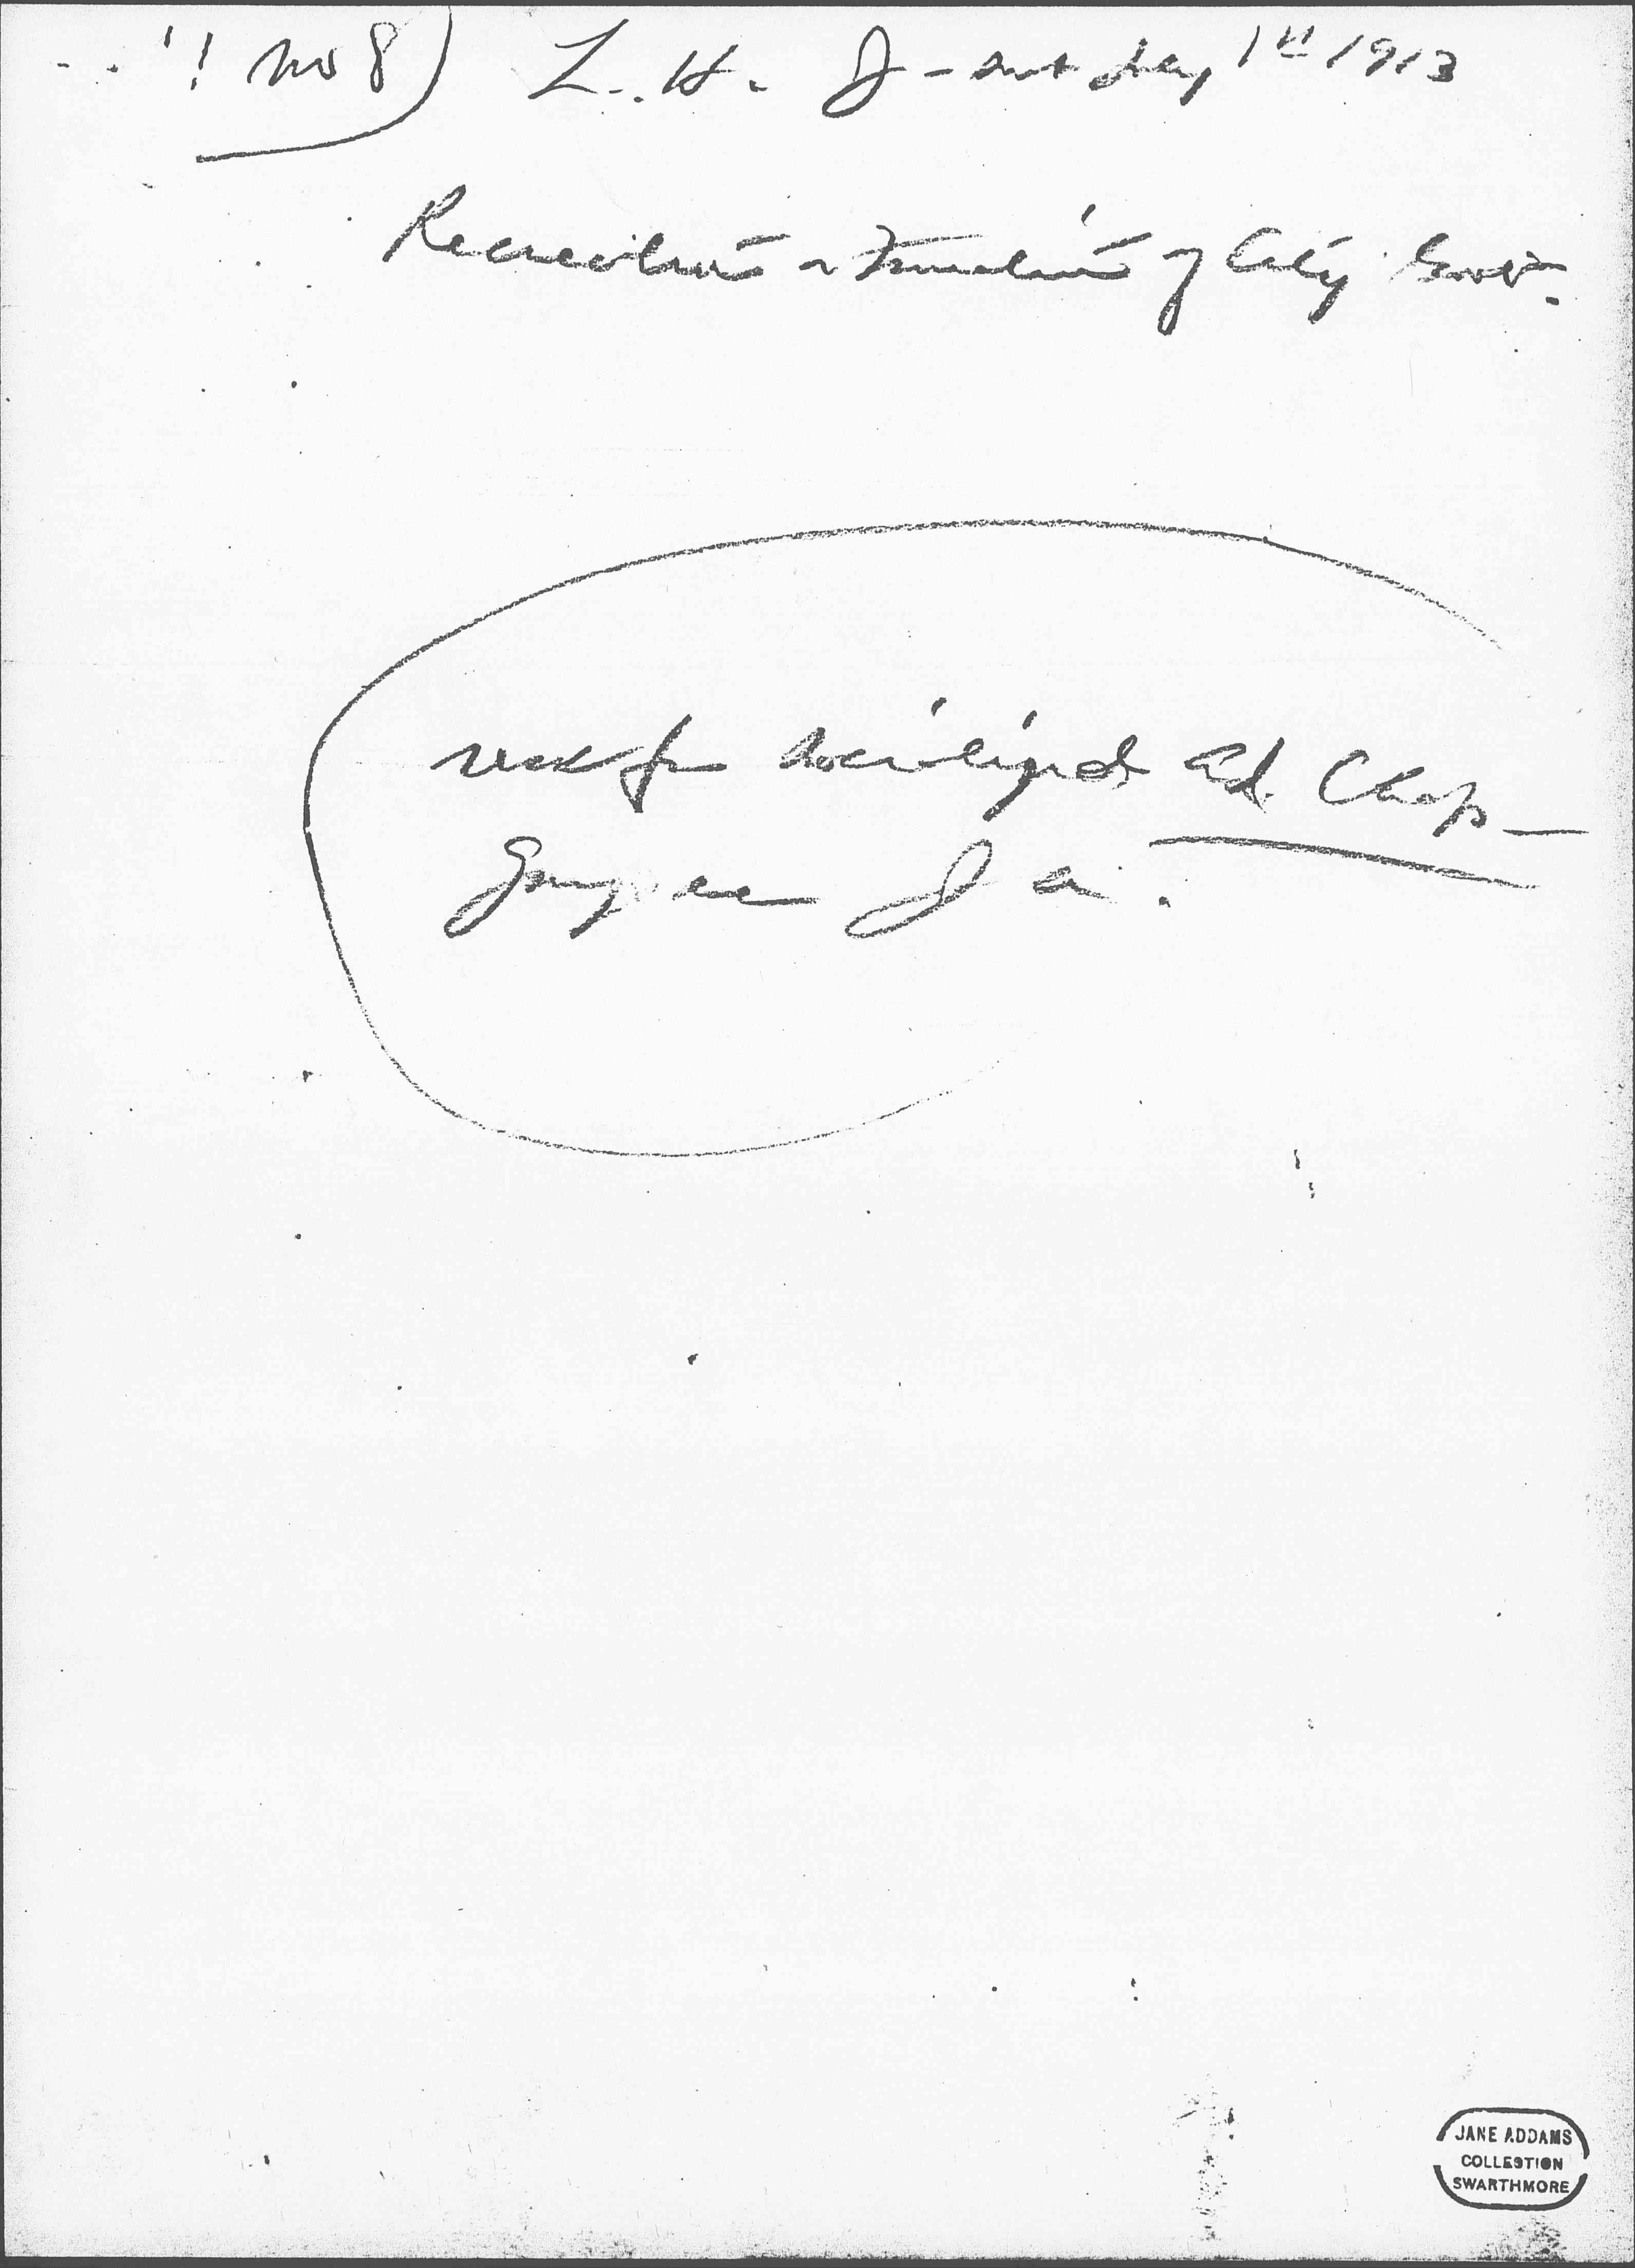 no 8) L. H. J - sent July 1st 1913
Recreation a Function of City Govt.
used for Socialized Ed. Chap -
J A.
JANE ADDAMS
COLLECTION
SWARTHMORE